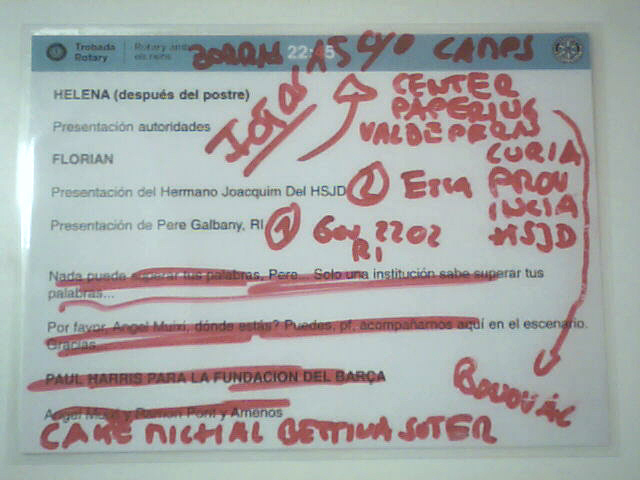 Trobada Rotary
Rotary amb els nens
22:45
CAMPS
CENTER
PAPERIUS
HELENA (después del postre)
Presentación autoridades
CURIA
FLORIAN
Presentación del Hermano Joacquim Del HSJD
2
PROV
INCIA
Presentación de Pere Galbany, RI
1
Gov 2202
RI
HSJD
Nada puede superar tus palabras, Pere... Solo una institución sabe superar tus
palabras...
Por favor, Angel Muixi, dónde estás? Puedes, pf, acompañarnos aquí en el escenario.
Gracias.
PAUL HARRIS PARA LA FUNDACION DEL BARÇA
Angel Muixi y Ramon Pont y Amenos
BETTINA SOTER